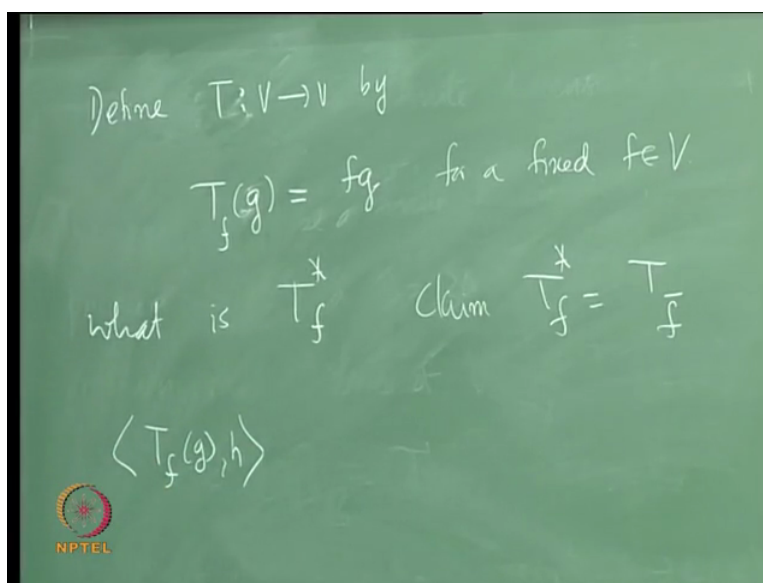 Define T: V → V by
T_f(g) = fg for a fixed f ∈ V.
what is T_f^* Claim T_f^* = T_{\bar{f}}
⟨T_f(g), h⟩
NPTEL